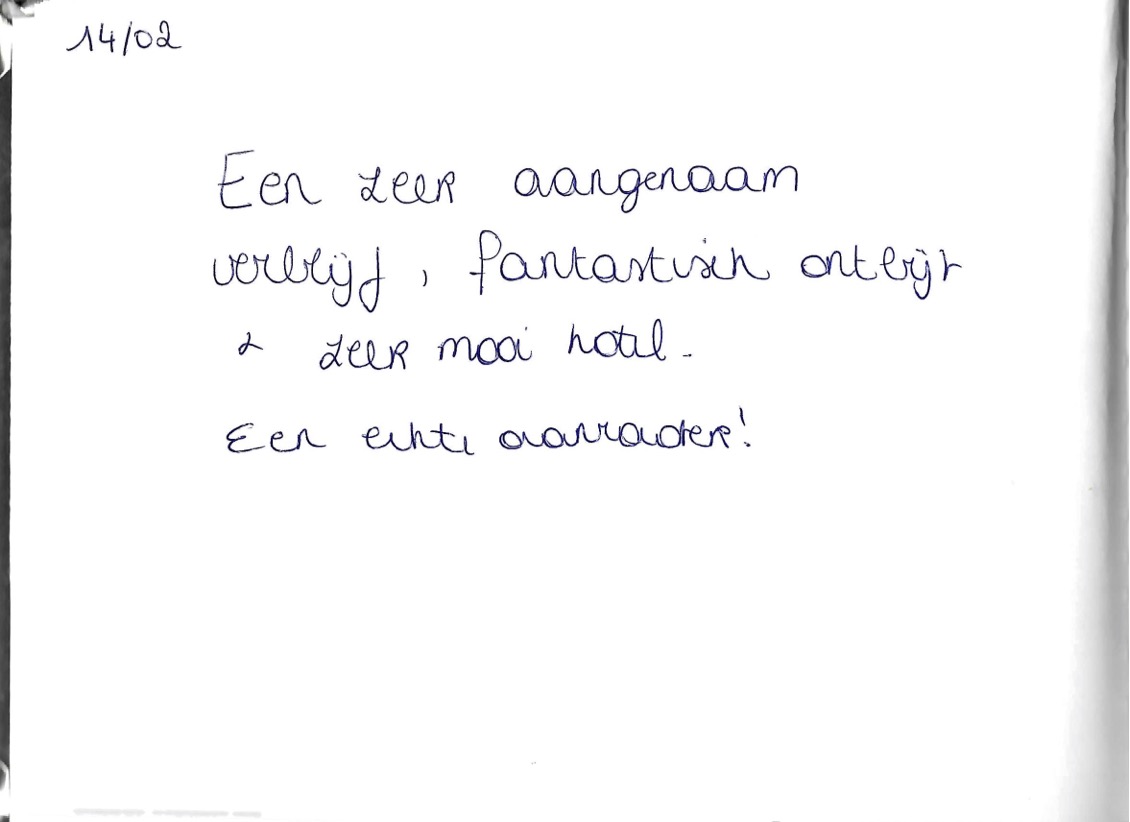 14/02
Een zeer aangenaam
verblijf, fantastisch ontbijt
& zeer mooi hotel.
Een echte aanrader!